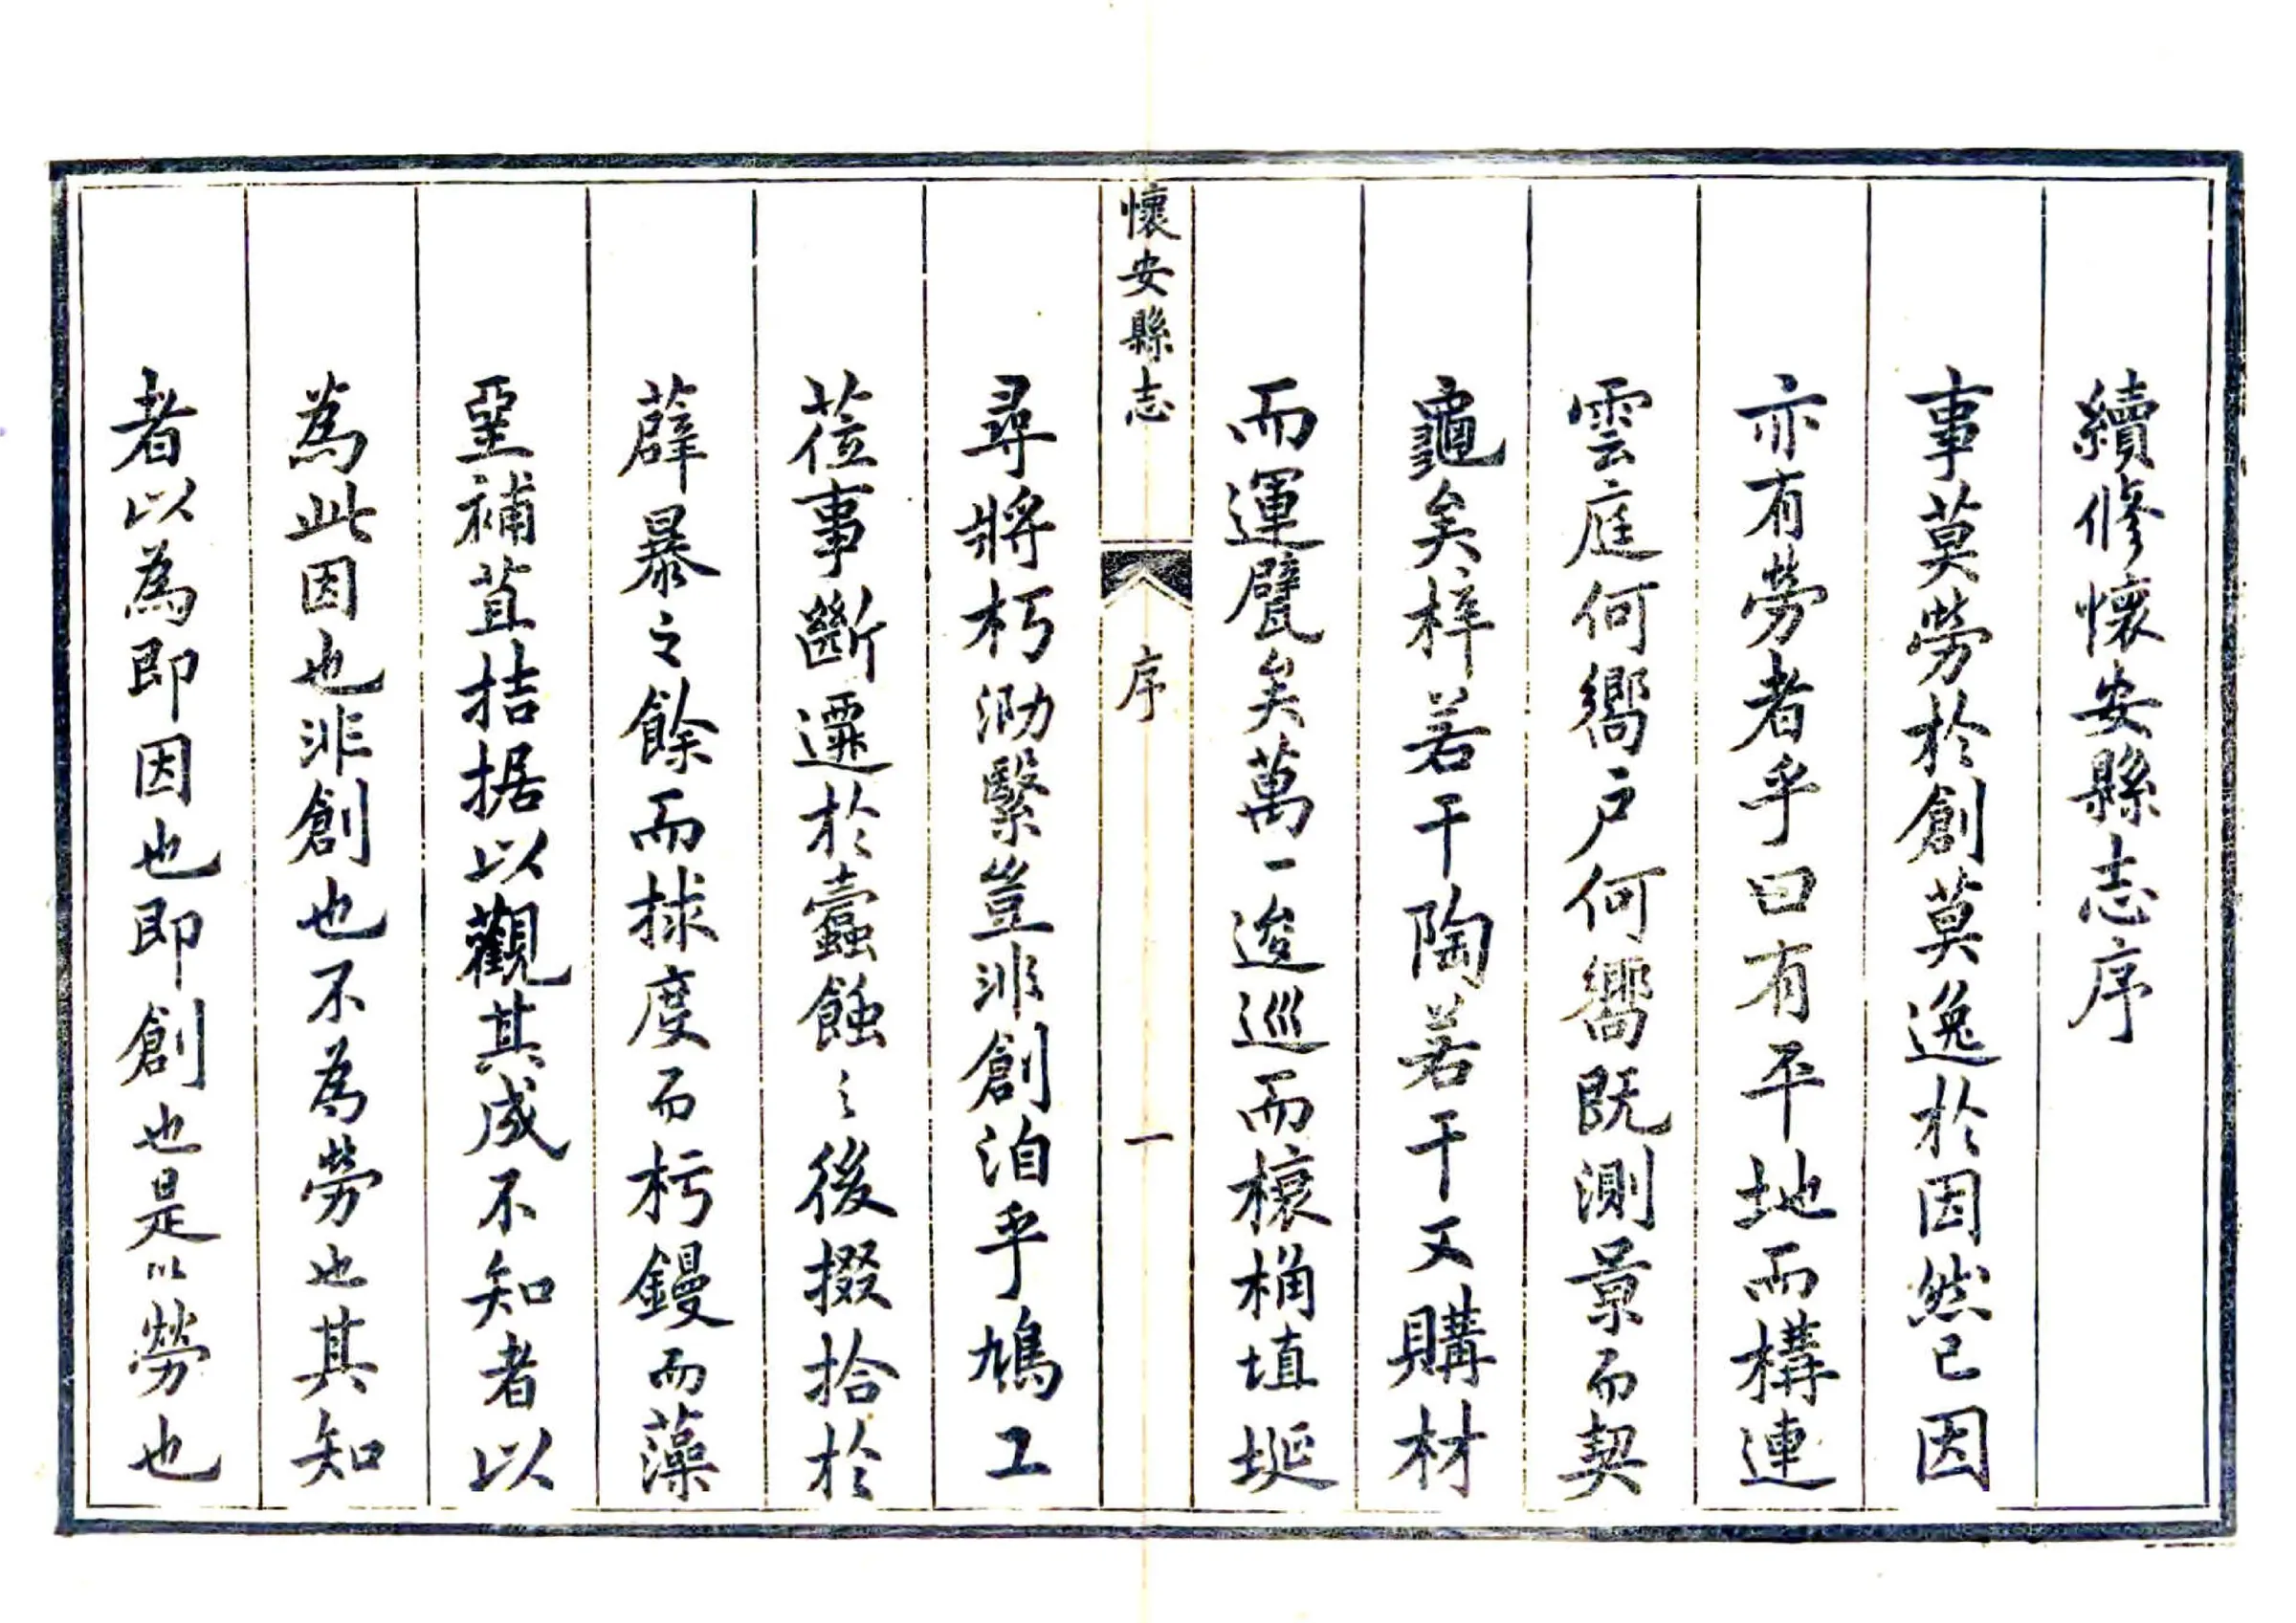 續修懷安縣志序
事莫勞於創莫逸於因然已因
亦有勞者乎曰有平地而構連
雲庭何嚮户何嚮既測景而契
龜矣梓若干陶若干又購材
而運甓矣萬一逡巡而榱桷埴埏
尋將朽泐繄豈非創洎乎鳩工
莅事斷遷於蠹蝕之後掇拾於
薜暴之餘而捄度而杇鏝而藻
堊補苴拮据以觀其成不知者以
為此因也非創也不為勞也其知
者以為即因也即創也是以勞也
懷安縣志
序
一